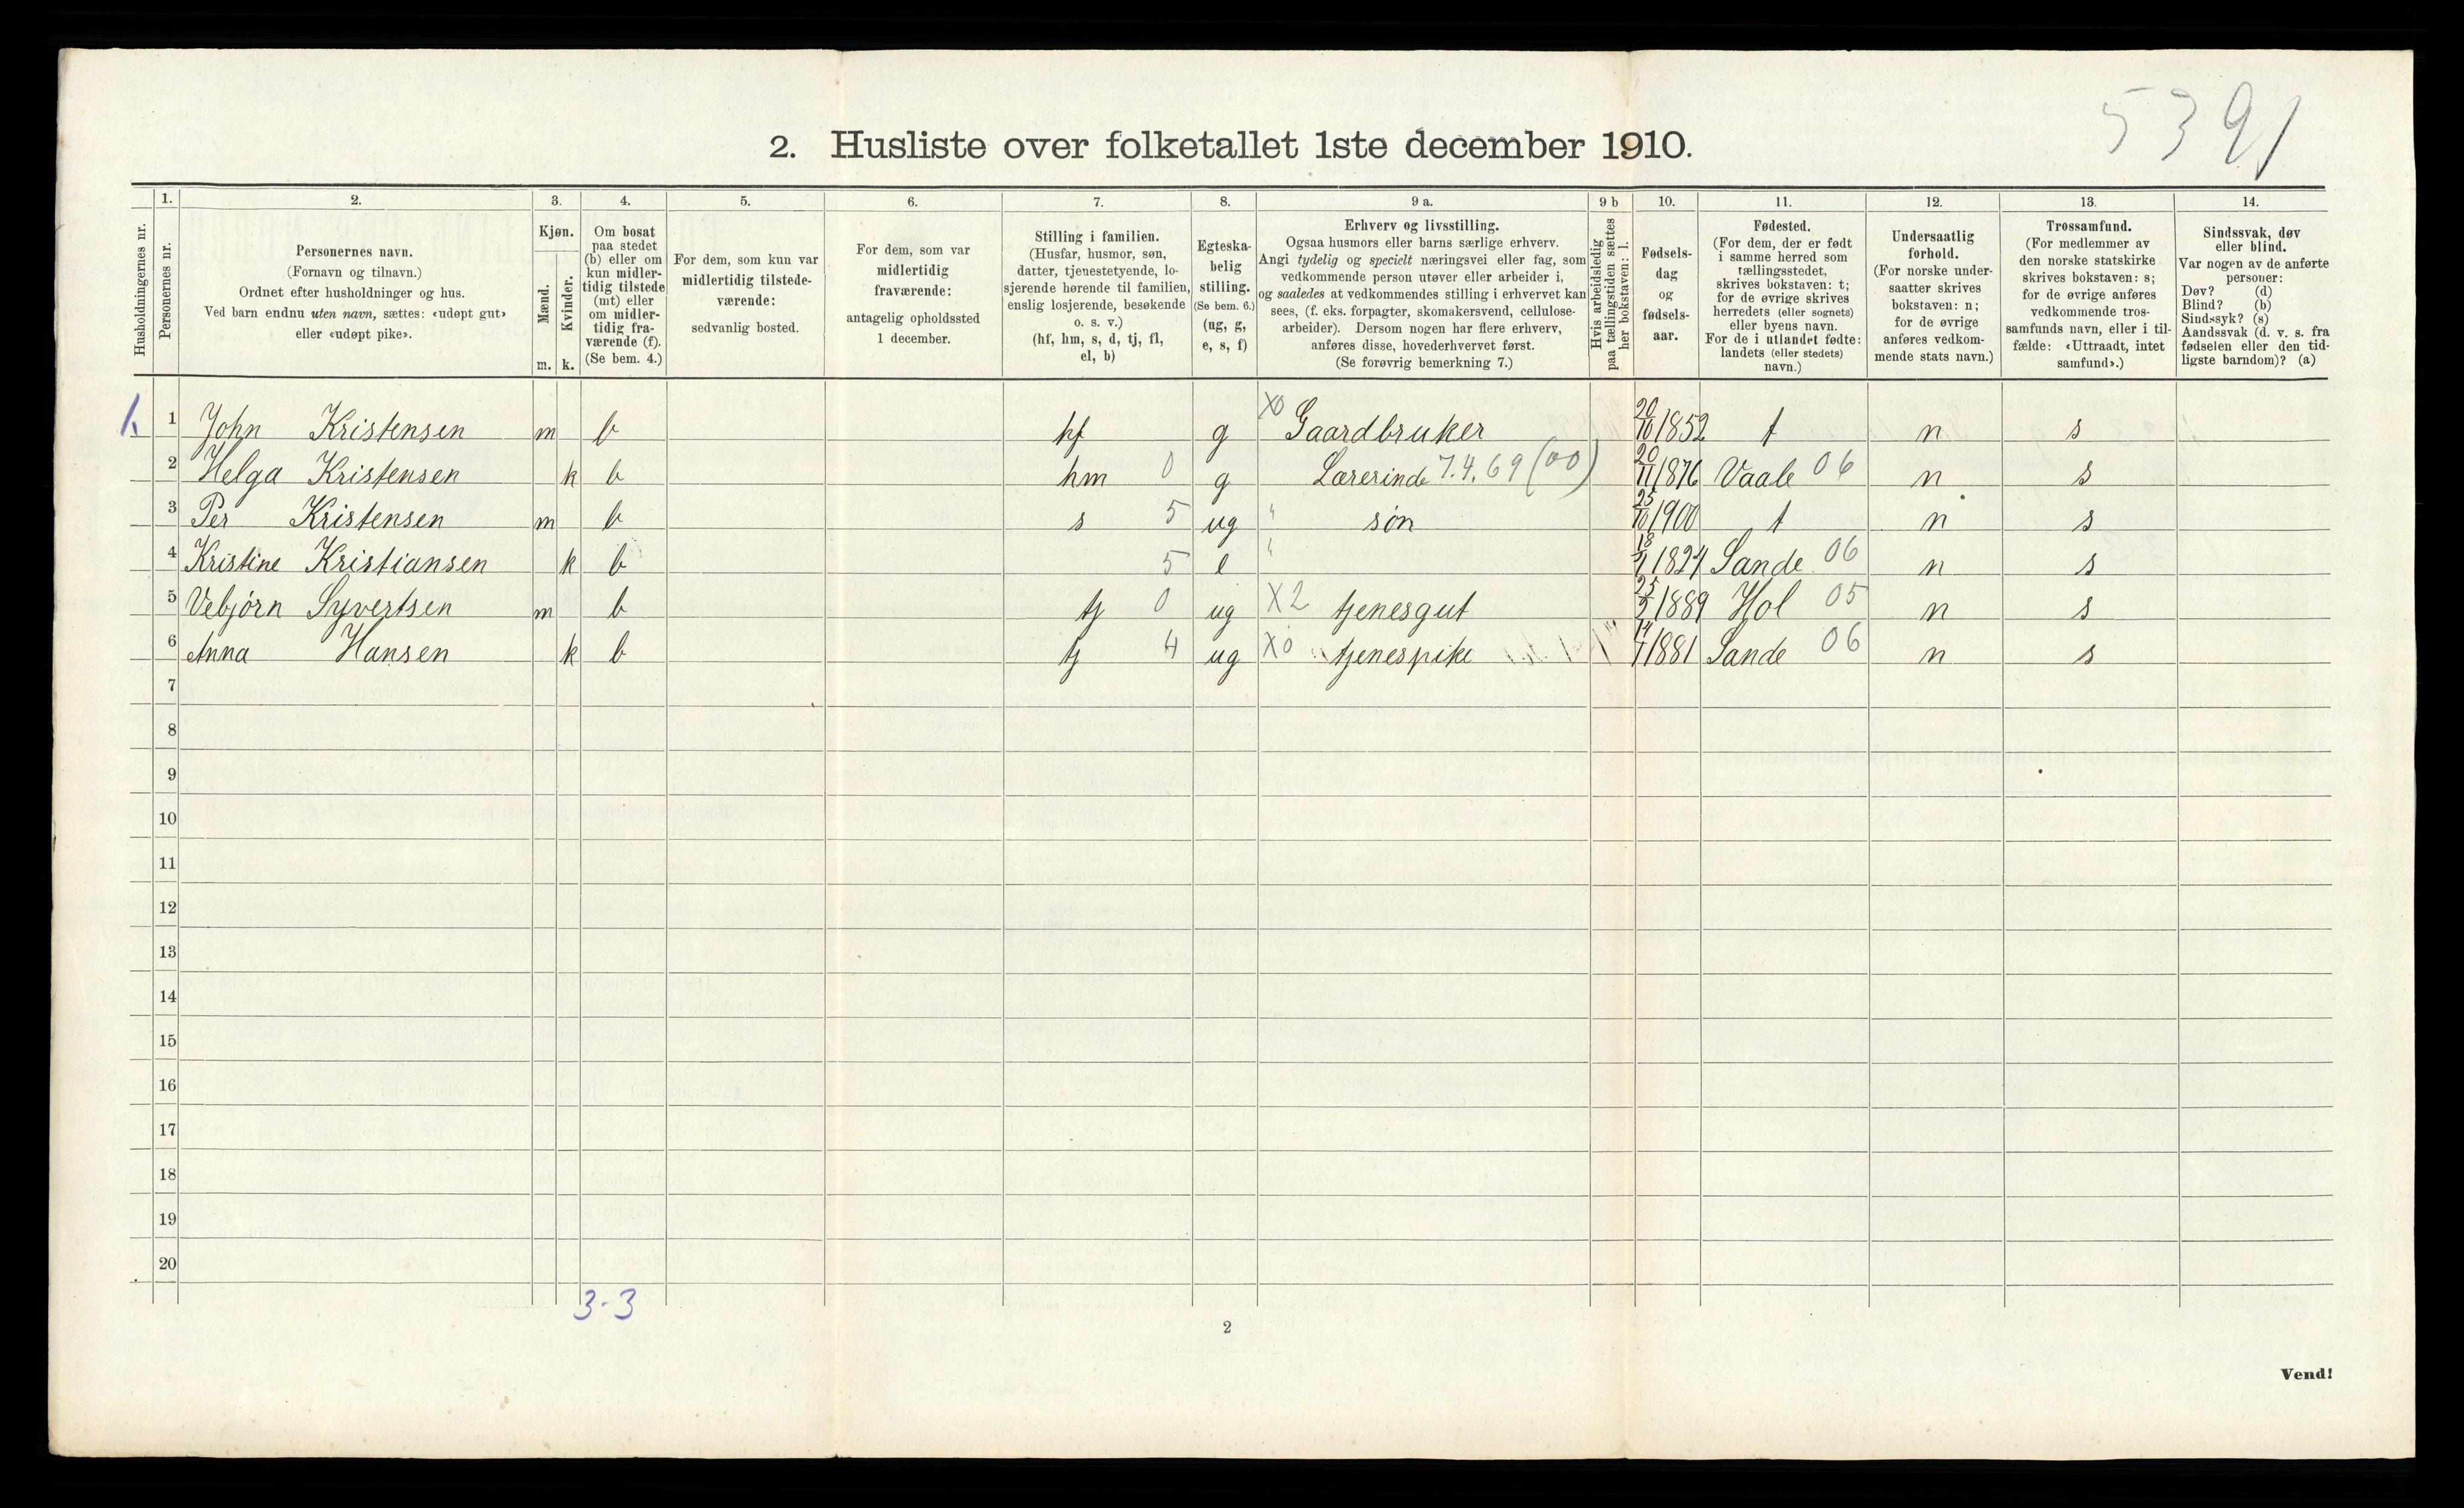 5391
2. Husliste over folketallet 1ste december 1910.
Husholdningernes nr.
1.
Personernes nr.
2.
Personernes navn.
(Fornavn og tilnavn.)
Ordnet efter husholdninger og hus.
Ved barn endnu uten navn, sættes: «udøpt gut»
eller «udøpt pike».
3.
Kjøn.
Mænd.
Kvinder.
m. k.
4.
Om bosat
paa stedet
(b) eller om
kun midler-
tidig tilstede
(mt) eller
om midler-
tidig fra-
værende (f).
(Se bem. 4.)
5.
For dem, som kun var
midlertidig tilstede-
værende:
sedvanlig bosted.
6.
For dem, som var
midlertidig
fraværende:
antagelig opholdssted
1 december.
7.
Stilling i familien.
(Husfar, husmor, søn,
datter, tjenestetyende, lo-
sjerende hørende til familien,
enslig losjerende, besøkende
o. s. v.)
(hf, hm, s, d, tj, fl,
el, b)
8.
Egteska-
belig
stilling.
(Se bem. 6.)
(ug, g,
e, s, f)
9 a.
Erhverv og livsstilling.
Ogsaa husmors eller barns særlige erhverv.
Angi tydelig og specielt næringsvei eller fag, som
vedkommende person utøver eller arbeider i,
og saaledes at vedkommendes stilling i erhvervet kan
sees, (f. eks. forpagter, skomakersvend, cellulose-
arbeider). Dersom nogen har flere erhverv,
anføres disse, hovederhvervet først.
(Se forøvrig bemerkning 7.)
9 b
Hvis arbeidsledig
paa tællingstiden sættes
her bokstaven: l.
10.
Fødsels-
dag
og
fødsels-
aar.
11.
Fødested.
(For dem, der er født
i samme herred som
tællingsstedet,
skrives bokstaven: t;
for de øvrige skrives
herredets (eller sognets)
eller byens navn.
For de i utlandet fødte:
landets (eller stedets)
navn.)
12.
Undersaatlig
forhold.
(For norske under-
saatter skrives
bokstaven: n;
for de øvrige
anføres vedkom-
mende stats navn.)
13.
Trossamfund.
(For medlemmer av
den norske statskirke
skrives bokstaven: s;
for de øvrige anføres
vedkommende tros-
samfunds navn, eller i til-
fælde: «Uttraadt, intet
samfund».)
14.
Sindssvak, døv
eller blind.
Var nogen av de anførte
personer:
Døv? (d)
Blind? (b)
Sindssyk? (s)
Aandssvak (d. v. s. fra
fødselen eller den tid-
ligste barndom)? (a)
1. 1 John Kristensen m b hf g X0 Gaardbruker 20/10 1852 t n s
2 Helga Kristensen k b hm 0 g Lærerinde 7.4.69 (00) 20/11 1876 Vaale 06 n s
3 Per Kristensen m b s 5 ug " søn 25/10 1900 t n s
4 Kristine Kristiansen k b 5 e " 1824 Sande 06 n s
5 Vebjörn Syvertsen m b tj 0 ug X2 tjenesgut 1889 Hol 05 n s
6 Anna Hansen k b tj 4 ug X0 tjenespike 1881 Sande 06 n s
7
8
9
10
11
12
13
14
15
16
17
18
19
20
3-3
2
Vend!